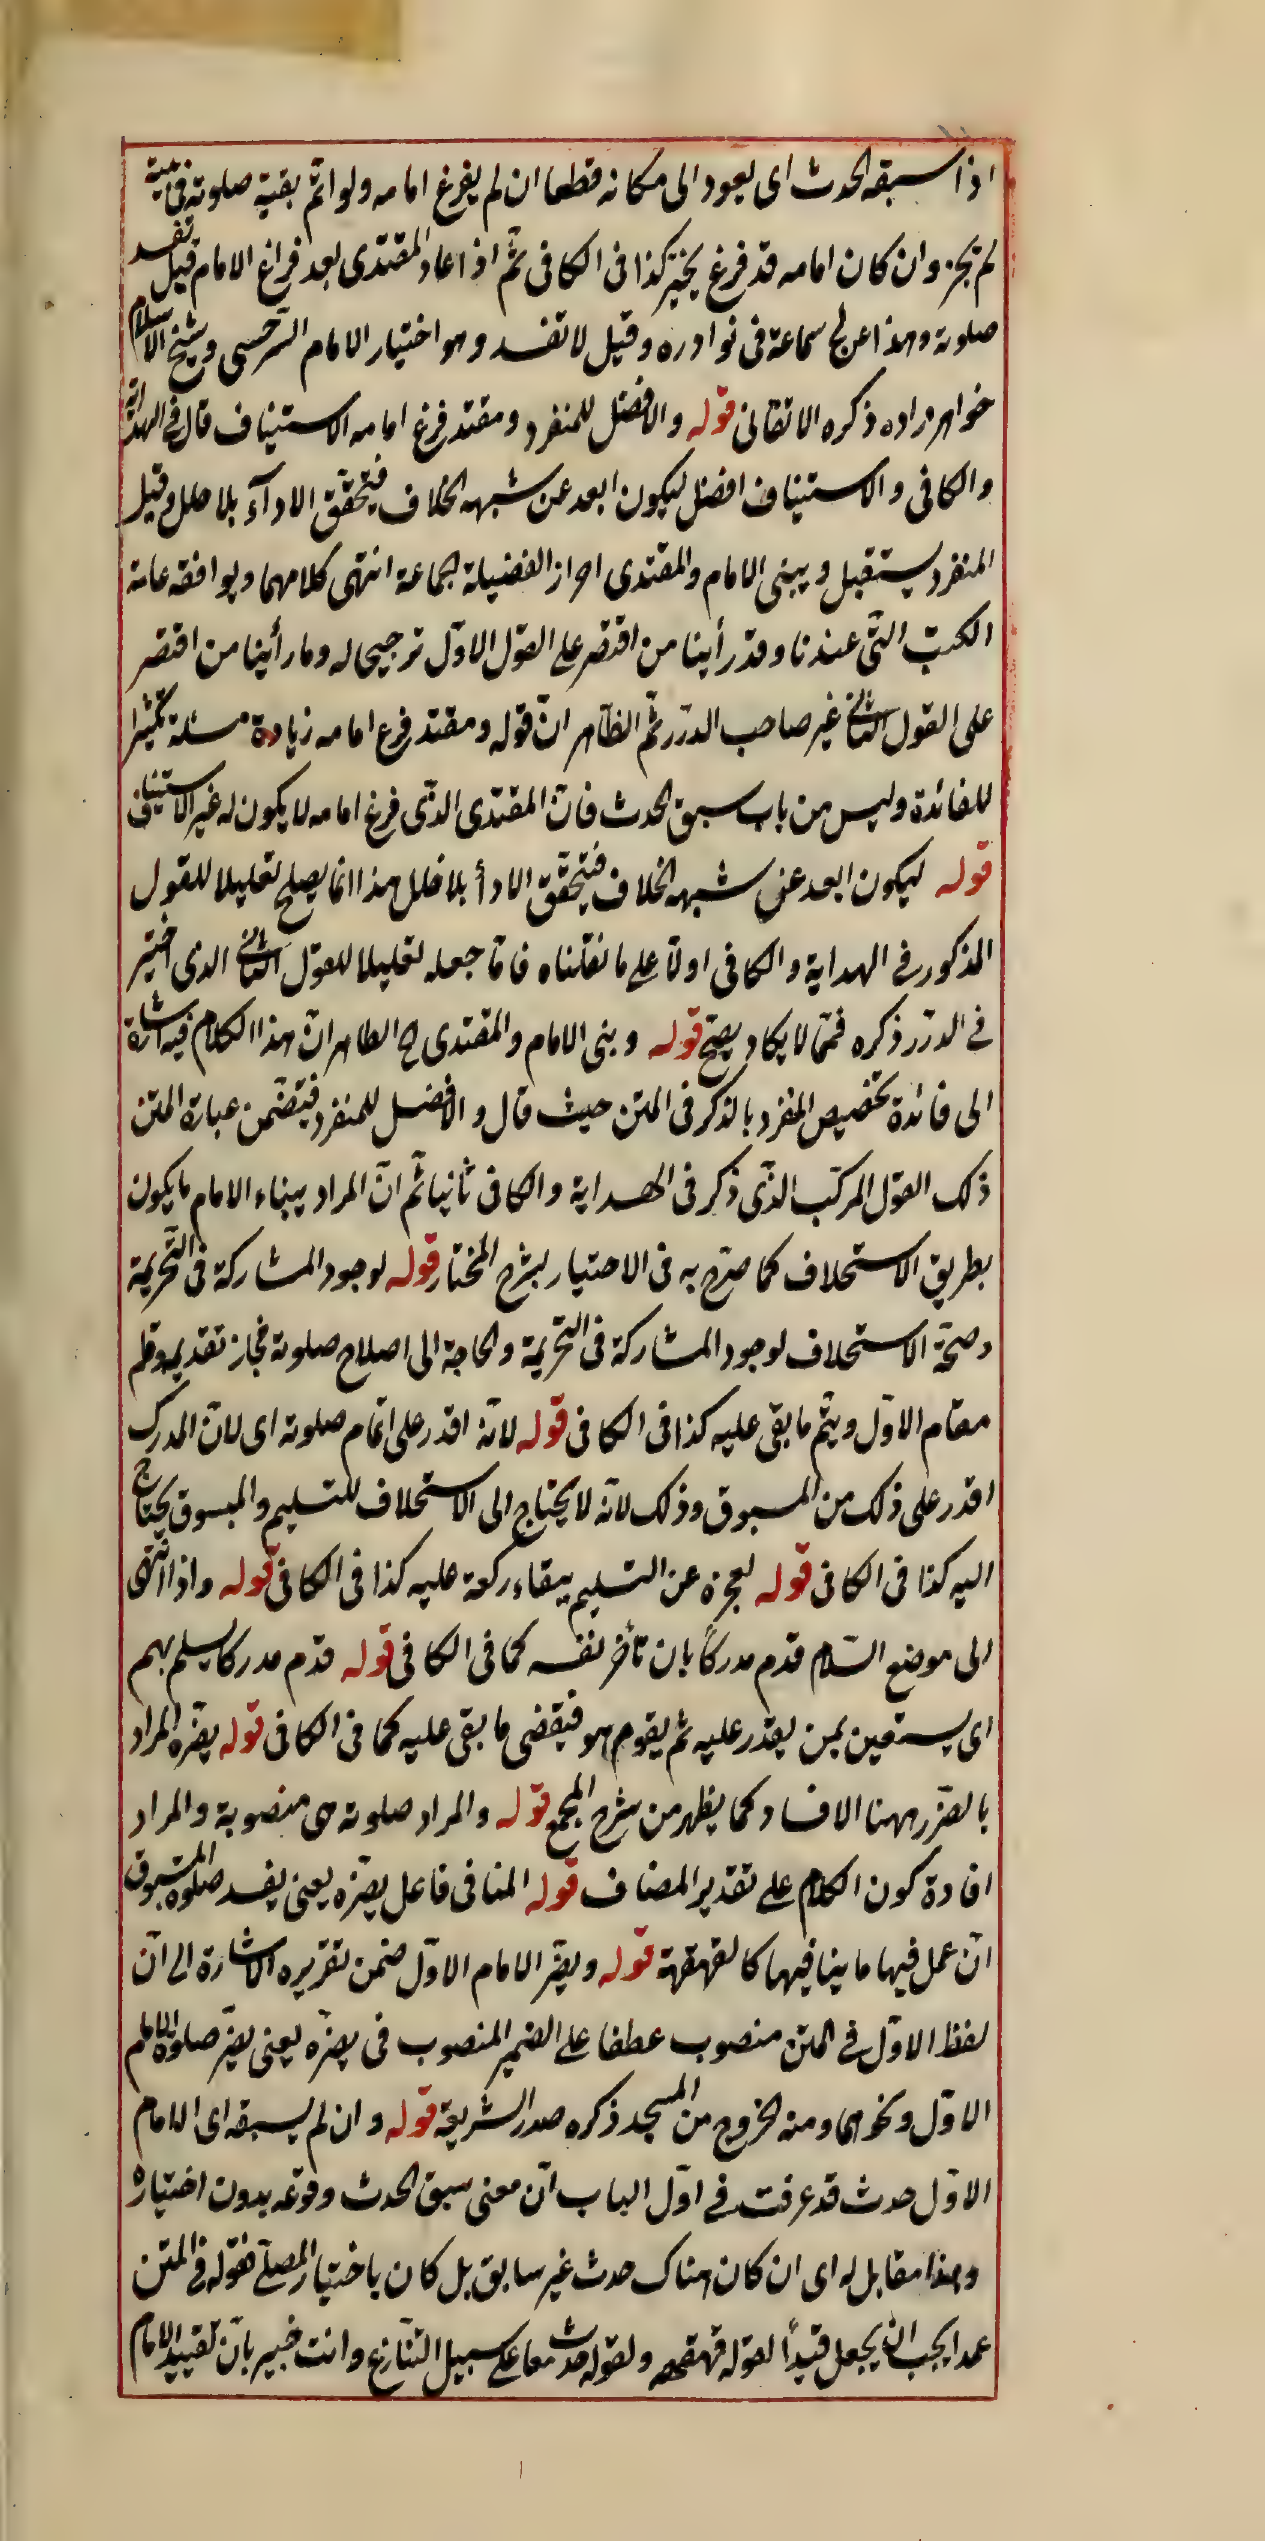 اذا سبقه الحدث اى يعود الى مكانه قطعا ان لم يفرغ امامه ولو اتمّ بقية صلوته فى بيته
لم تجز وان كان امامه قد فرغ يخيّر كذا فى الكافى ثمّ اذا عاد المقتدى بعد فراغ الامام قيل تفسد
صلوته وهذا عن سماعة فى نوادره وقيل لا تفسد وهو اختيار الامام السّرخسى وشيخ الاسلام
خواهر زاده ذكره الاتقانى قوله والافضل للمنفرد ومقتد فرغ امامه الاستيناف قال فى الهداية
والكافى والاستيناف افضل ليكون ابعد عن شبهه الخلاف فيتحقّق الاداء بلا خلل وقيل
المنفرد يستقبل ويبنى الامام والمقتدى احرازا لفضيلة الجماعة انتهى كلامهما ويوافقه عامة
الكتب التّى عندنا وقد رأينا من اقتصر على القول الاوّل ترجيحا له وما رأينا من اقتصر
على القول الثانى غير صاحب الدّرر ثمّ الظاهر انّ قوله ومقتد فرغ امامه زيادة مسئلة تكثيرا
للفائدة وليس من باب سبق الحدث فانّ المقتدى الذّى فرغ امامه لا يكون له غير الاستيناف
قوله ليكون ابعد عن شبهه الخلاف فيتحقّق الادأ بلا خلل هذا انما يصلح تعليلا للقول
المذكور فى الهداية والكافى اولا على ما نقلناه فامّا جعله تعليلا للقول الثانى الذى اختير
فى الدّرر ذكره فممّا لا يكاد يصحّ قوله وبنى الامام والمقتدى الخ الظاهر انّ هذا الكلام فيه اشارة
الى فائدة تخصيص المنفرد بالذكر فى المتن حيث قال والافضل للمنفرد فيتضمّن عبارة المتن
ذلك القول المركّب الذّى ذكر فى الهداية والكافى ثانيا ثمّ انّ المراد ببناء الامام ما يكون
بطريق الاستخلاف كما صرّح به فى الاختيار لشرح المختار قوله لوجود المشاركة فى التّحريمة
وصحّة الاستخلاف لوجود المشاركة فى التّحريمة والحاجة الى اصلاح صلوته فجاز تقديمه وقام
مقام الاوّل ويتمّ ما بقى عليه كذا فى الكافى قوله لانّه اقدر على اتمام صلوته اى لانّ المدرك
اقدر على ذلك من المسبوق وذلك لانّه لا يحتاج الى الاستخلاف للتسليم والمبسوق يحتاج
اليه كذا فى الكافى قوله لعجزه عن التسليم ببقاء ركعة عليه كذا فى الكافى قوله واذا انتهى
الى موضع السّلام قدم مدركًا بان تأخر نفسه كما فى الكافى قوله قدّم مدركا يسلم بهم
اى يستعين بمن يقدر عليه ثم يقوم هو فيقضى ما بقى عليه كما فى الكافى قوله يضرّه المراد
بالضّرر ههنا الافساد كما يظهر من شرح المجمع قوله والمراد صلوته هى منصوبة والمراد
افادة كون الكلام على تقدير المضاف قوله المنافى فاعل يضرّه يعنى يفسد صلوة المسبوق
انّ عمل فيها ما ينافيها كالقهقهة قوله ويضرّ الامام الاوّل ضمن تقريره الاشارة الى انّ
لفظ الاوّل فى المتن منصوب عطفا على الضمير المنصوب فى يضرّه يعنى يضرّ صلوة الامام
الاوّل ونحوهما ومنه الخروج من المسجد ذكره صدر الشريعة قوله وان لم يسبقه اى الامام
الاوّل حدث قد عرفت فى اوّل الباب انّ معنى سبق الحدث وقوعه بدون اختياره
وهذا مقابل له اى ان كان هناك حدث غير سابق بل كان باختيار المصلّى فقوله فى المتن
عمدا يجب ان يجعل قيدًا لقوله قهقهه ولقوله حدث معا على سبيل التّنازع وانت خبير بانّ تقييد الامام